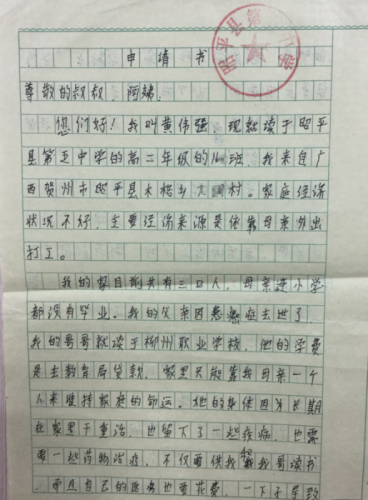 申请书
尊敬的叔叔、阿姨：
您们好！我叫黄伟强 现就读于昭平
县第五中学的高二年级的16班 我来自广
西贺州市昭平县木格乡 村。家庭经济
状况不好 主要经济来源是依靠母亲外出
打工。
我的家目前共有三口人，母亲连小学
都没有毕业。我的父亲因患癌症去世了
我的哥哥就读于柳州职业学校，他的学费
是去教育局贷款，家里只能靠我母亲一个
人来维持家庭的命运。她的身体因为长期
在家里干重活，也留下了一些疾病，也需
要一些药物治疗，不仅要供我 我哥读书
而且自己的 也要花费，一下子导致